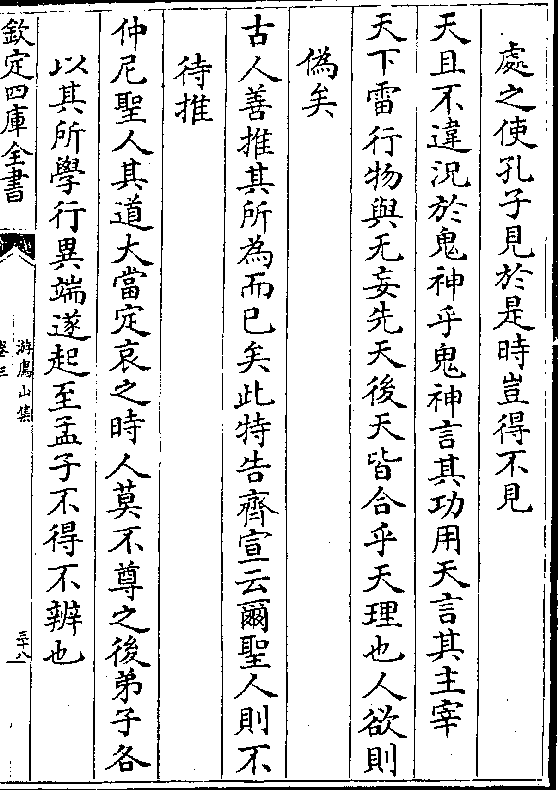 處之使孔子見於是時豈得不見
天且不違況於鬼神乎鬼神言其功用天言其主宰
天下雷行物與无妄先天後天皆合乎天理也人欲則
偽矣
古人善推其所為而已矣此特告齊宣云爾聖人則不
待推
仲尼聖人其道大當定哀之時人莫不尊之後弟子各
以其所學行異端遂起至孟子不得不辨也
欽定四庫全書
游廌山集
卷三
三十八